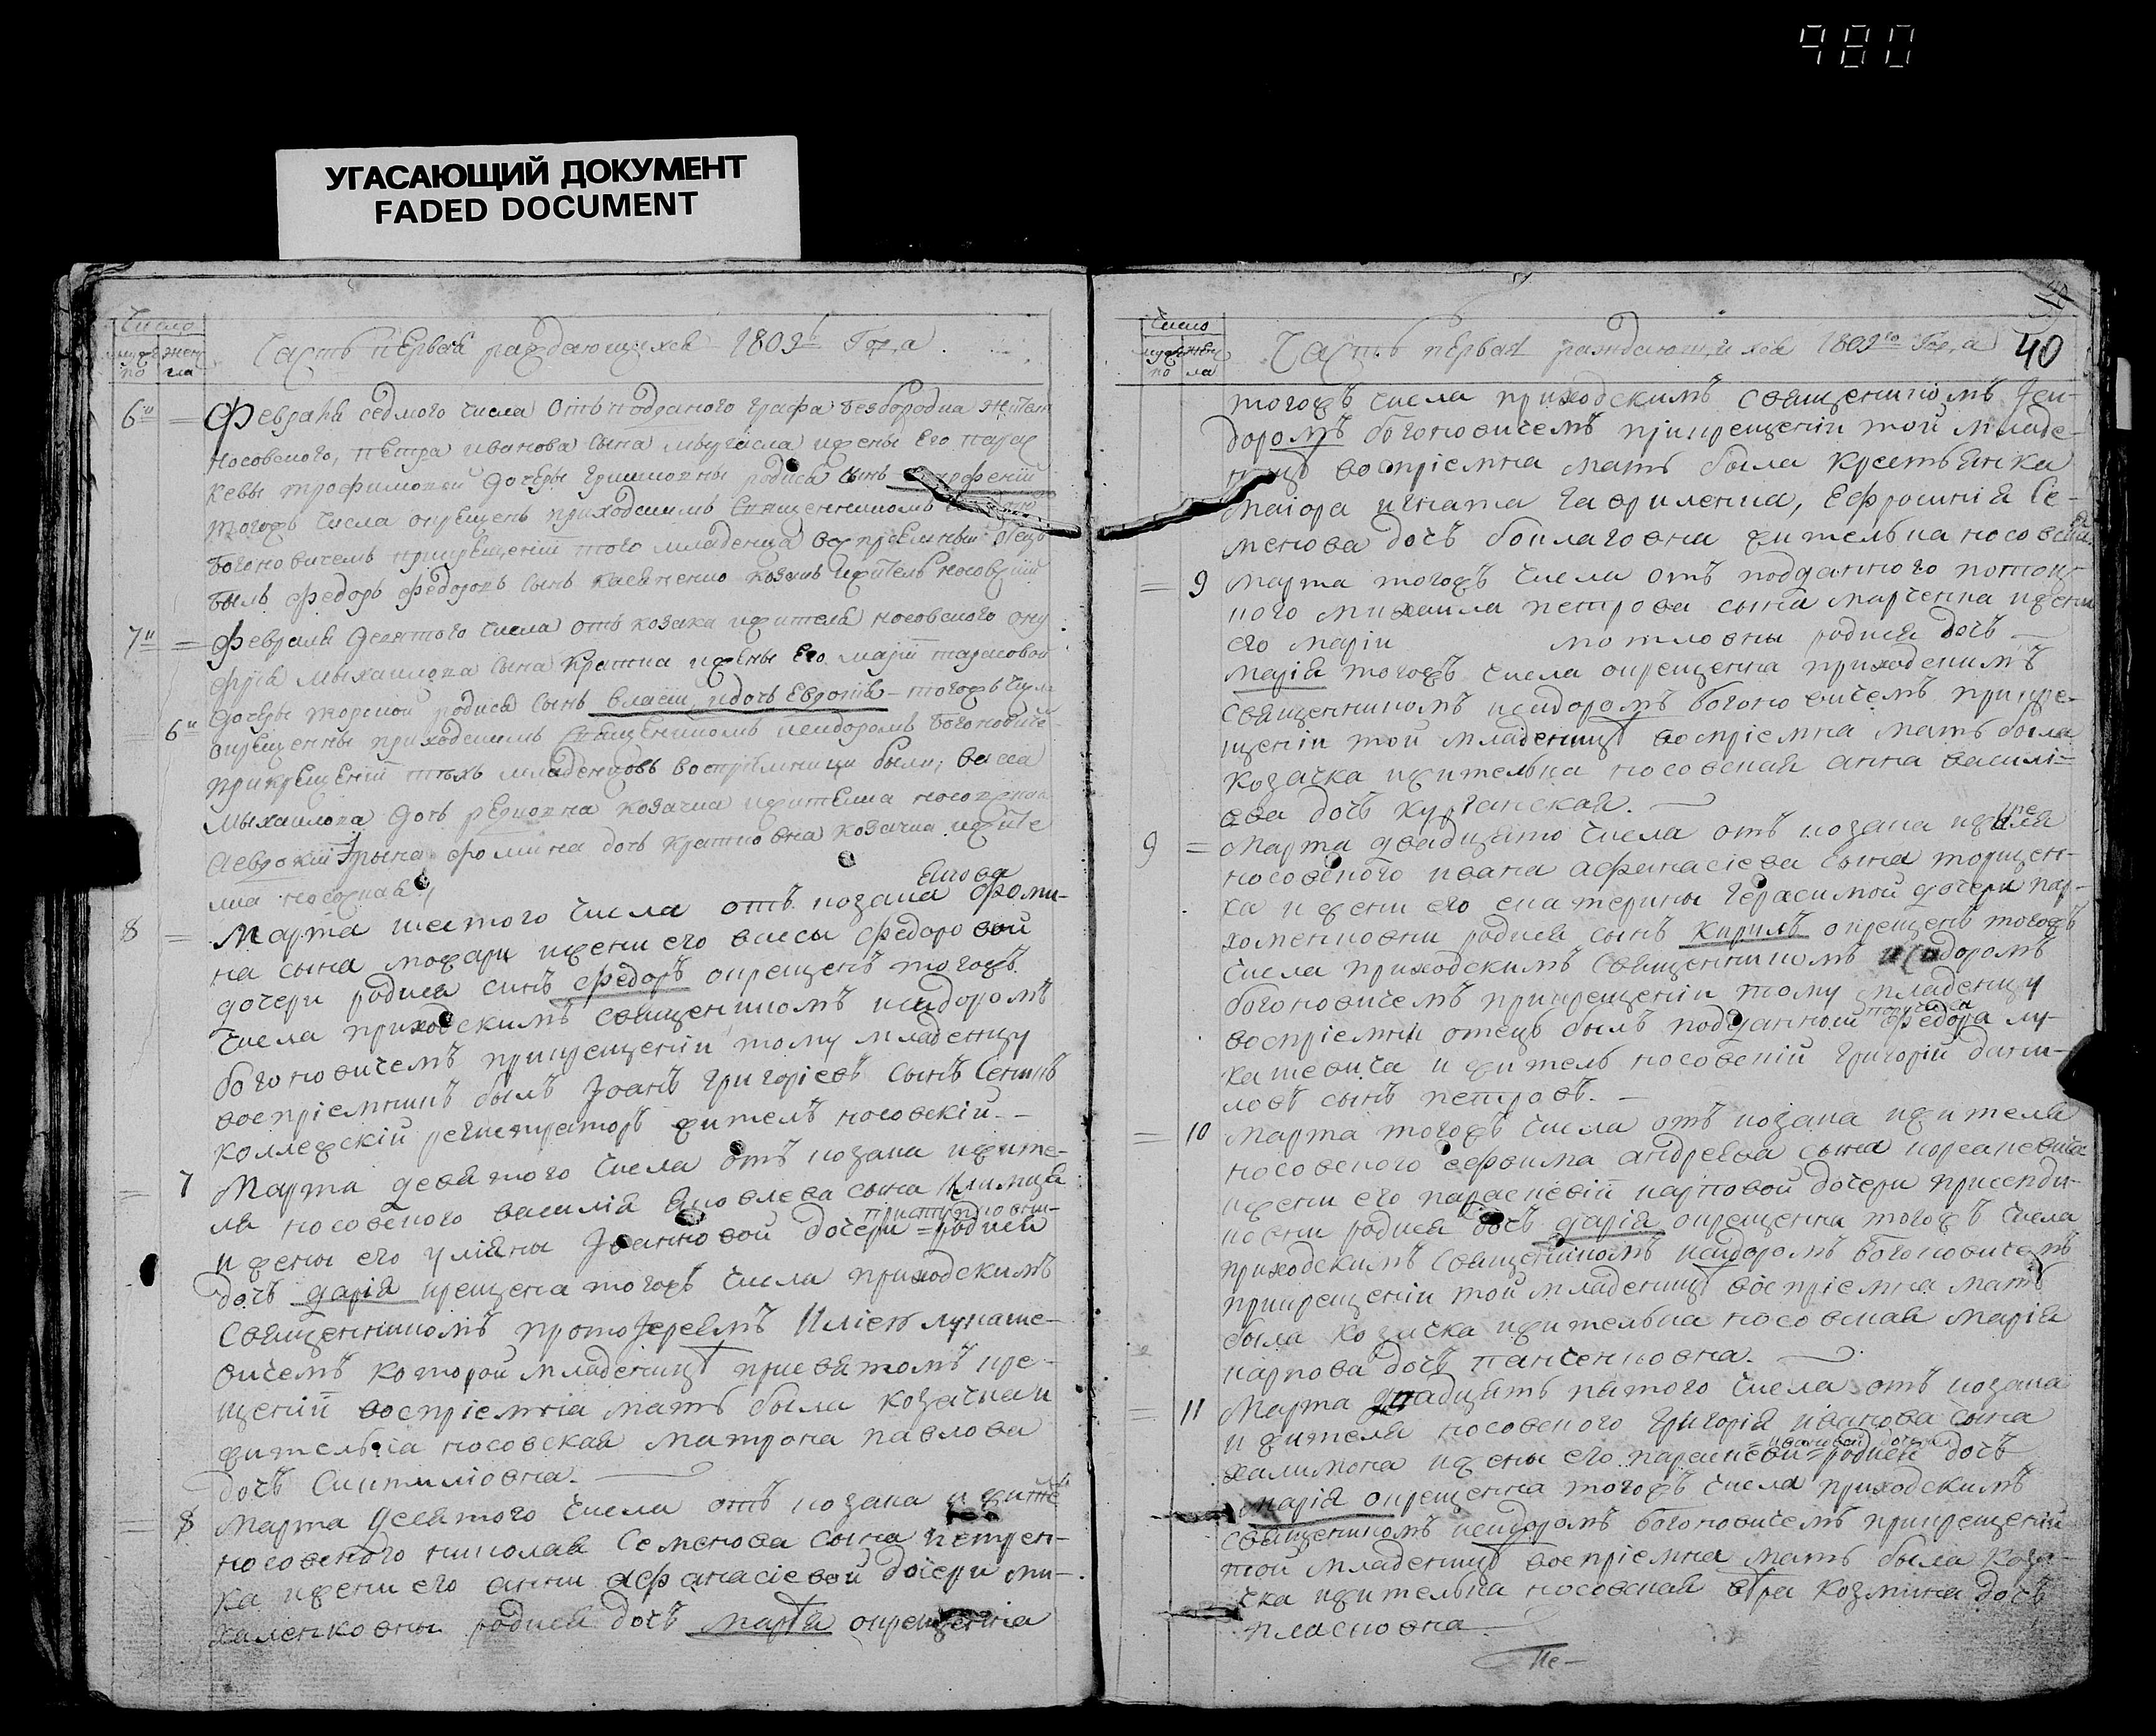 980
УГАСАЮЩИЙ ДОКУМЕНТ
FADED DOCUMENT
Число
муже жен
по ла
Часть первая раждающихся 1809 Года
6 Февраля седмого числа отъ подданого графа Безбородка жителя
носовского, петра иванова сына и жены его парас
кевы трофимовой дочеры родися сынъ
тогожъ числа окрещенъ приходскимъ священникомъ
богоновичемъ прикрещеніи того младенца воспріемный отецъ
былъ федоръ федоровъ сынъ касяненко козакъ ижитель носовскій
7 Февраля десятого числа отъ козака ижителя носовского ону
фрія мыхаилова сына крапка ижены его маріи тарасовой
дочеры родися сынъ власій идочь Евдокія тогожъ числа
6 окрещенны приходскимъ священникомъ исидоромъ богоновиче
прикрещеніи тѣхъ младенцовъ воспріемници были, васса
мыхаилова дочь козачка ижителка носовская
аевдокіи фомина дочь крапковна козачка ижите
лка носовская
8 Марта шестого числа отъ козака фоми-
на сына ижени его васы федоровой
дочери родися синъ федоръ окрещенъ тогожъ
числа приходскимъ священникомъ исидоромъ
богоновичемъ прикрещеніи тому младенцу
воспріемникъ былъ Іоанъ григоріевъ сынъ
коллежскій регистраторъ жителъ носовскій. –
7 Марта девятого числа отъ козака ижите-
ля носовского василія Яковлева сына
и жены его уліяны Іоанновой дочери = родися
дочъ дарія крещена тогожъ числа приходскимъ
священникомъ протоіереемъ Иліею лукаше-
вичемъ которой младеницѣ присвятомъ кре-
щеніи воспріемнія мать были козачка и
жителька носовская матрона павлова
дочъ
8 Марта десятого числа отъ козака ижите ля
носовского николая семенова сына петрен-
ка ижени его анни афанасіевой дочери ми-
халенковны родися дочъ марія окрещенна
40
Число
муже жен
по ла
Часть первая раждающихся 1809го Года
тогожъ числа приходскимъ священикомъ Іси-
доромъ богоновичемъ прикрещеніи той младе-
ницѣ воспріемна мать была крестьянка
маіора игната гавриленка, Ефросинія Се-
менова дочъ жителька носовская
9 марта тогожъ числа отъ подданного
ного михаила петрова сына марченка ижени
его маріи родися дочъ –
марія тогожъ числа окрещенна приходскимъ
священникомъ исидоромъ богоновичемъ прикре-
щеніи той младеницѣ воспріемна мать была
козачка ижителька носовская анна василі-
ева дочъ курганская.
9 Марта двадцято числа отъ козака ижителя
носовского ивана афанасіева сына торщен-
ка и жени его екатерины герасимой дочери пар-
хоменковни родися сынъ кирилъ окрещенъ тогожъ
числа приходскимъ священникомъ исидоромъ
богоновичемъ прикрещеніи тому младенцу
воспріемній отецъ былъ подданный федора лу-
кашевича и житель носовскій григорій дани-
ловъ сынъ петровъ. –
10 Марта тогожъ числа отъ козака ижителя
носовского ефима андреева сына
ижени его параскевіи карповой дочери
родися дочъ дарія окрещенна тогожъ числа
приходскимъ священикомъ исидоромъ богоновичемъ
прикрещеніи той младеницѣ воспріемна мать
была козачка ижителька носовская марія
карпова дочъ панченковна.
11 Марта двадцять пятого числа отъ козака
и жителя носовского григорія иванова сына
халимона ижены его параскеви = родися дочъ
марія окрещенна тогожъ числа приходскимъ
священикомъ исидоромъ богоновичемъ прикрещеніи
той младеницѣ воспріемна мать была коза-
чка ижителька носовская козмина дочъ
пласковна